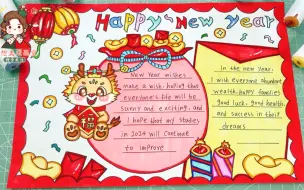 Happy new year
New Year wishes
make a wish, hoping that
everyone's life will be
sunny and exciting, and
I hope that my studies
in 2024 will continue
to improve
In the new year,
I wish everyone abundant
wealth, happy families
good luck, good health,
and success in their
dreams
福